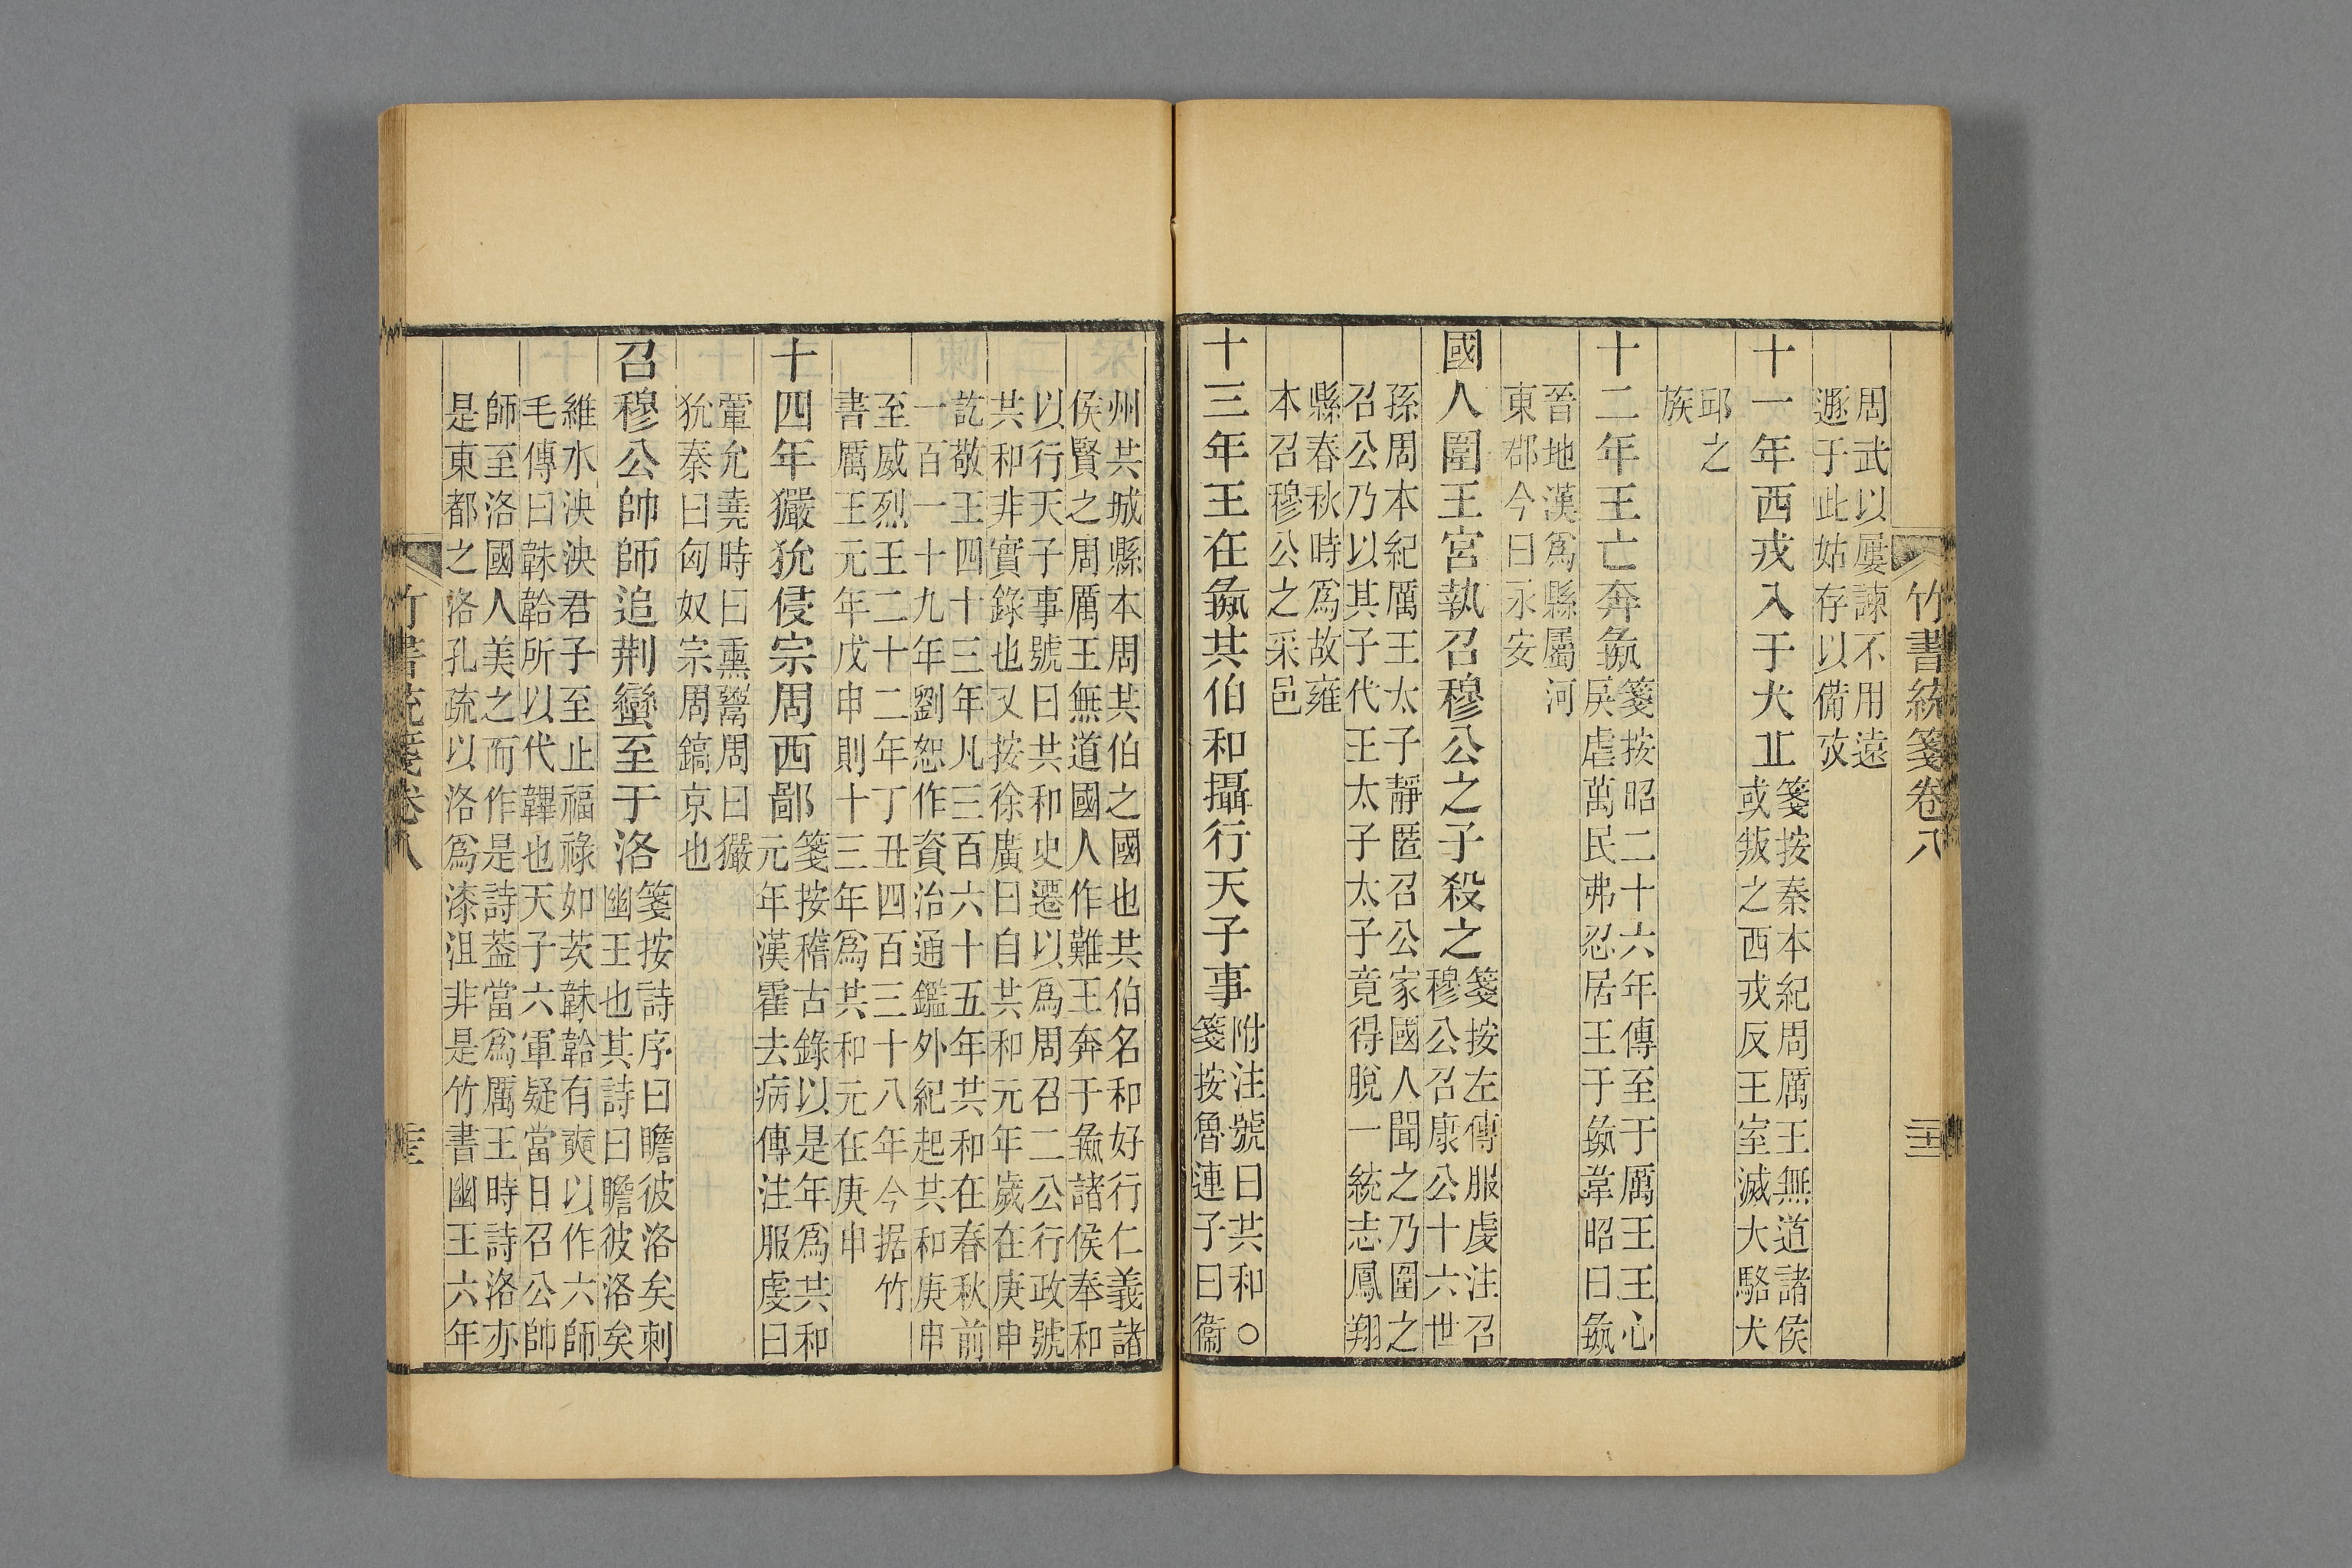 竹書統箋卷八
周武以屢諫不用遠
遯于此姑存以備攷
十一年西戎入于犬丘
箋按秦本紀周厲王無道諸侯
或叛之西戎反王室滅大駱犬
邱之
族
十二年王亡奔彘
箋按昭二十六年傳至于厲王王心
戾虐萬民弗忍居王于彘韋昭曰彘
晉地漢爲縣屬河
東郡今曰永安
國人圍王宮執召穆公之子殺之
箋按左傳服虔注召
穆公召康公十六世
孫周本紀厲王太子靜匿召公家國人聞之乃圍之
召公乃以其子代王太子太子竟得脫一統志鳳翔
縣春秋時爲故雍
本召穆公之采邑
十三年王在彘共伯和攝行天子事
附注號曰共和○
箋按魯連子曰衞
州共城縣本周共伯之國也共伯名和好行仁義諸
侯賢之周厲王無道國人作難王奔于彘諸侯奉和
以行天子事號曰共和史遷以爲周召二公行政號
共和非實錄也又按徐廣曰自共和元年歲在庚申
訖敬王四十三年凡三百六十五年共和在春秋前
一百一十九年劉恕作資治通鑑外紀起共和庚申
至威烈王二十二年丁丑四百三十八年今据竹
書厲王元年戊申則十三年爲共和元在庚申
十四年玁狁侵宗周西鄙
箋按稽古錄以是年爲共和
元年漢霍去病傳注服虔曰
葷允堯時曰熏鬻周曰玁
狁秦曰匈奴宗周鎬京也
召穆公帥師追荆蠻至于洛
箋按詩序曰瞻彼洛矣刺
幽王也其詩曰瞻彼洛矣
維水泱泱君子至止福祿如茨韎韐有奭以作六師
毛傳曰韎韐所以代韠也天子六軍疑當日召公帥
師至洛國人美之而作是詩葢當爲厲王時詩洛亦
是東都之洛孔疏以洛爲漆沮非是竹書幽王六年
竹書統箋卷八